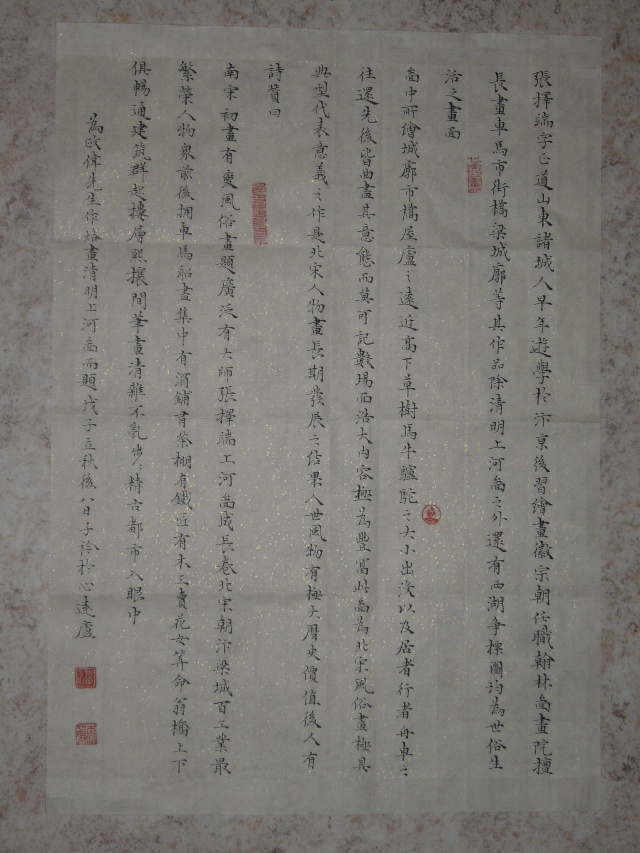 張擇端字正道山東諸城人早年遊學於汴京後習繪畫徽宗朝任職翰林畵畫院擅
長畫車馬市街橋梁城廓等其作品除清明上河畵之外還有西湖爭標圖均為世俗生
活之畫面
畵中所繪城廓市橋屋廬之遠近高下草樹馬牛驢駝之大小出沒以及居者行者舟車之
往還先後皆曲盡其意態而莫可記數場面浩大內容極為豐富此畵為北宋風俗畫極具
典型代表意義之作是北宋人物畫長期發展之結果人世風物有極大曆史價值後人有
詩贊曰
南宋初畫有變風俗畫題廣泛有大師張擇端上河畵成長卷北宋朝汴梁城百工業最
繁榮人物眾前後擁車馬船盡集中有酒鋪有茶棚有鐵匠有木工賣花女算命翁橋上下
俱暢通建筑群起樓層熙攘間筆畫清雜不亂步々精古都市入眼中
為欧偉先生作烙畫清明上河畵而題戊子立秋後八日子於心遠廬